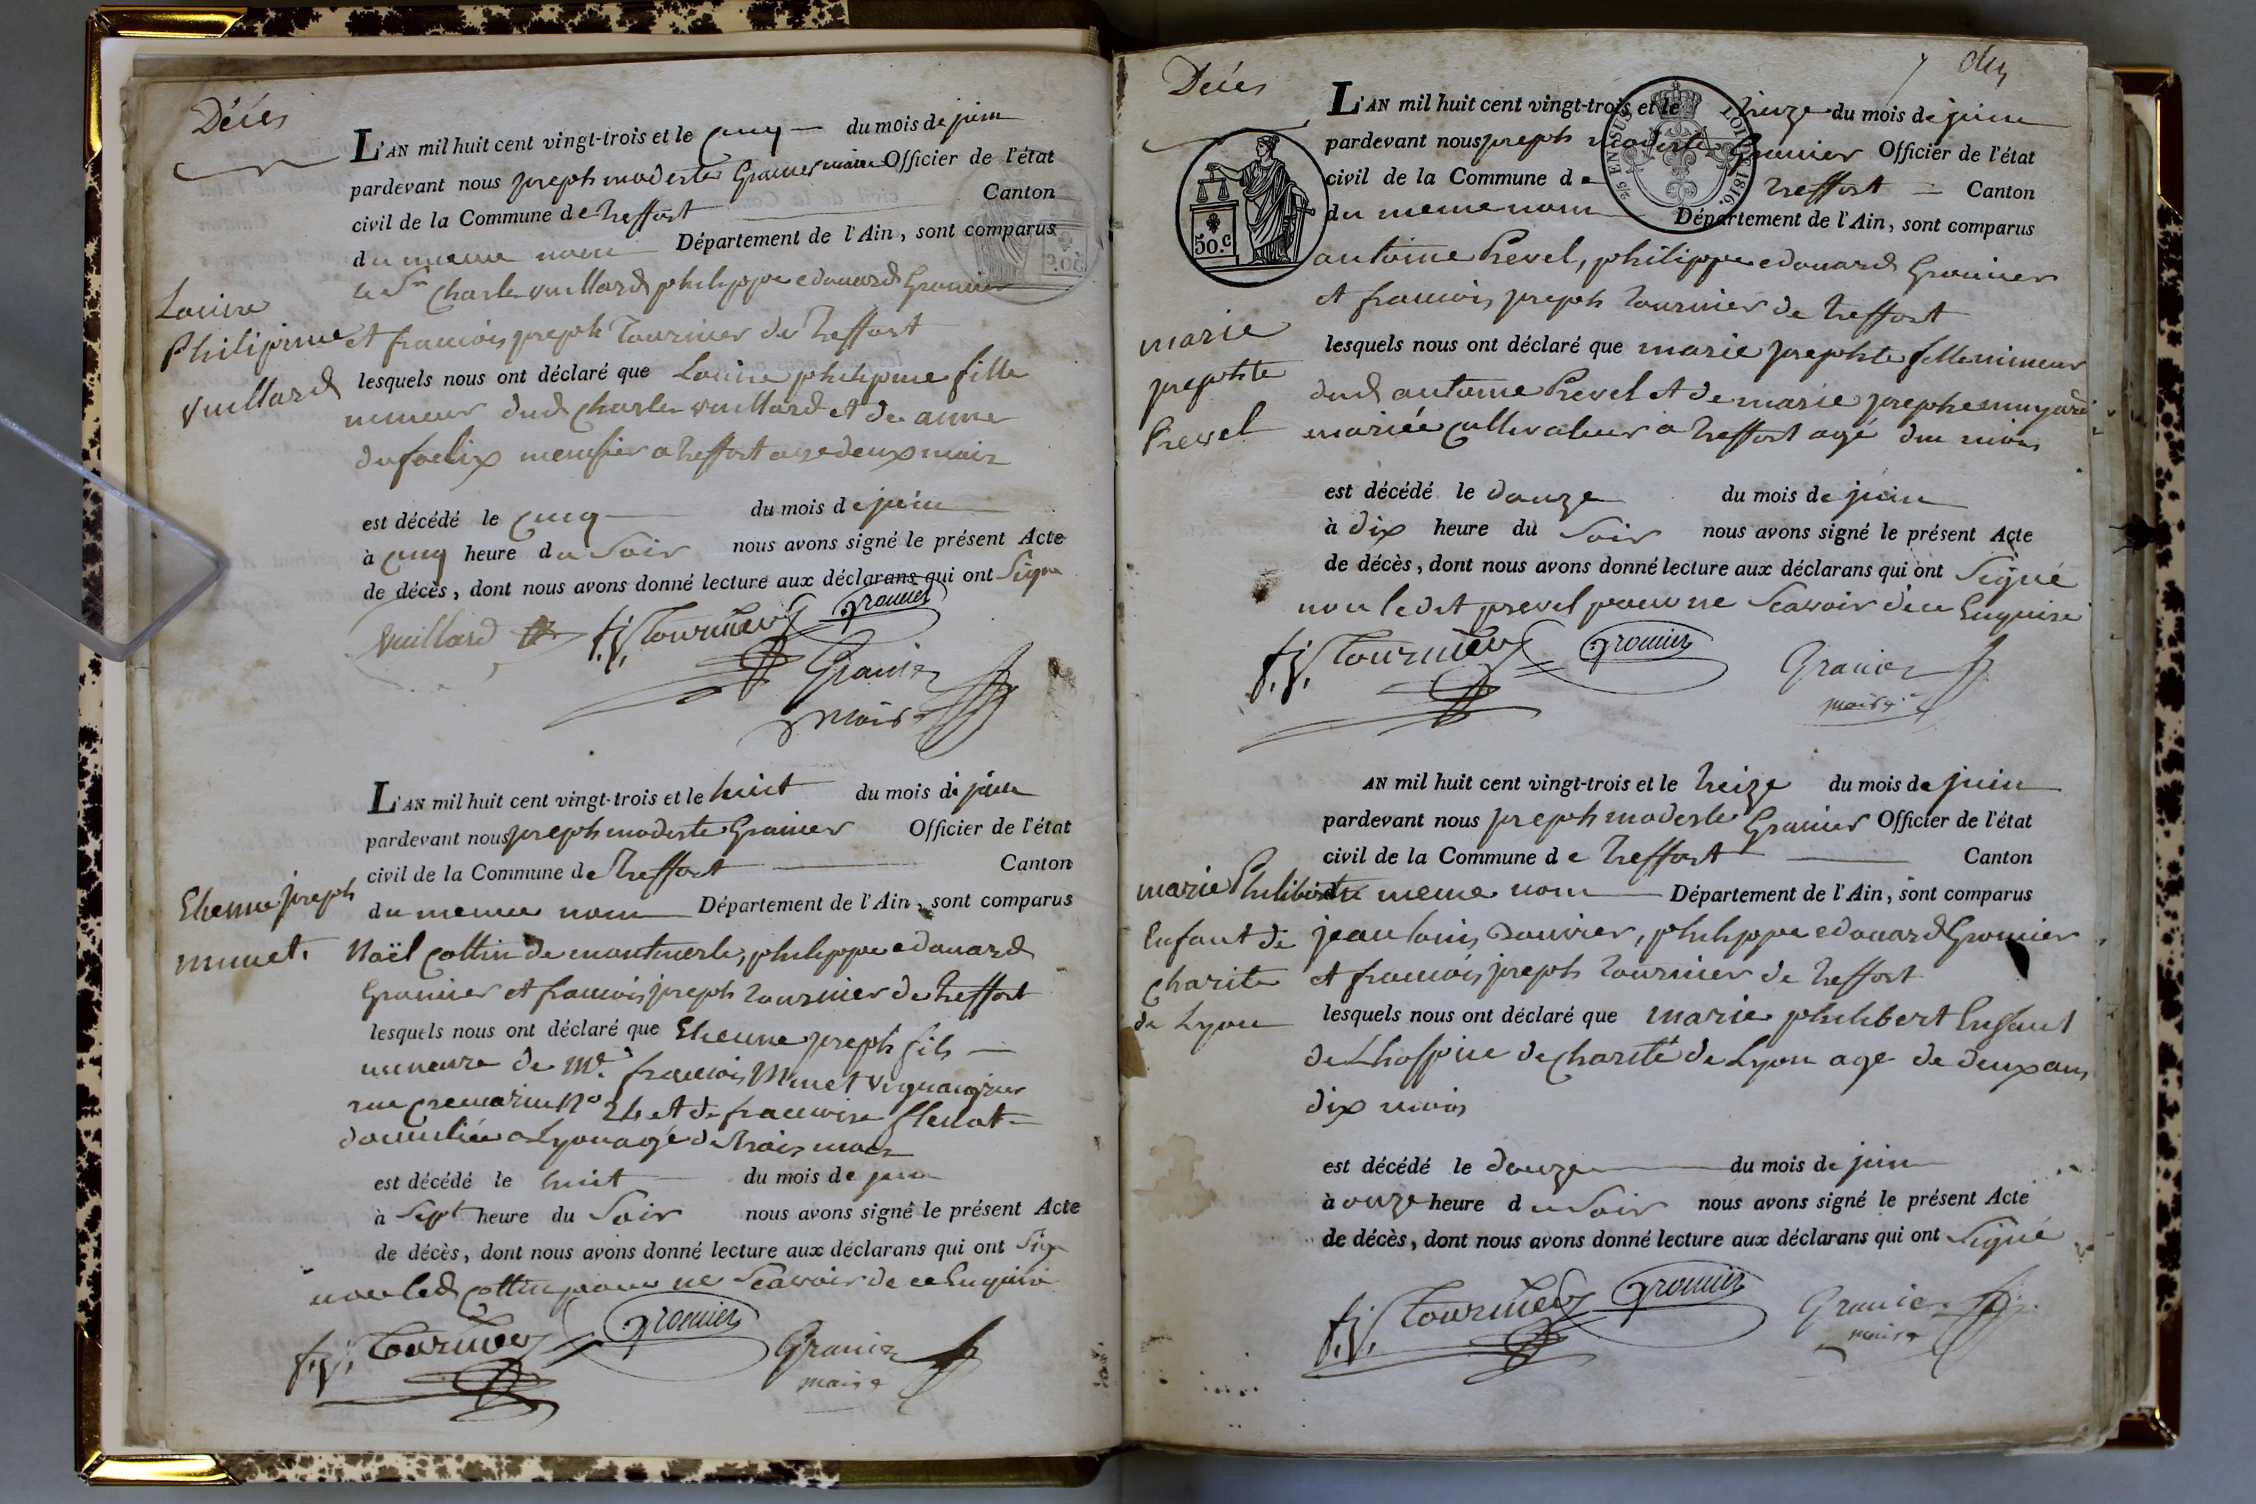 Décès
L'AN mil huit cent vingt-trois et le cinq du mois de juin
pardevant nous joseph modeste Granier maire Officier de l'état
civil de la Commune de treffort Canton
du meme nom Département de l'Ain, sont comparus
le Sr Charle vuillard philippe edouard Gromier
Louise
Philipine
vuillard
et francois joseph tournier de treffort
lesquels nous ont déclaré que Louise philipine fille
mineur dud Charles vuillard et de anne
dufoelix menusier a treffort age deux mois
est décédé le cinq du mois de juin
à cinq heure du Soir nous avons signé le présent Acte
de décès, dont nous avons donné lecture aux déclarans qui ont Signe
Vuillard f.j. Tournier Gromier
Granier
maire
L'AN mil huit cent vingt-trois et le huit du mois de juin
pardevant nous joseph modeste Granier Officier de l'état
civil de la Commune de treffort Canton
du meme nom Département de l'Ain, sont comparus
Etienne joseph
minet.
Noël Cottin de montmerle, philippe edouard
Gromier et francois joseph tournier de treffort
lesquels nous ont déclaré que Etienne joseph fils
mineure de Mr francois Minet
rue No 24 et de francoise
domicilié a Lyon agé de trois mois
est décédé le huit du mois de juin
à Sept heure du Soir nous avons signé le présent Acte
de décès, dont nous avons donné lecture aux déclarans qui ont Sign
non led Cottin pour ne Scavoir de ce Enquire
f.j. Tournier Gromier Granier
maire
7
Décès
L'AN mil huit cent vingt-trois et le treize du mois de juin
pardevant nous joseph modeste Granier Officier de l'état
civil de la Commune de treffort Canton
du meme nom Département de l'Ain, sont comparus
25 EN SUS LOI DE 1816.
50.c
antoine Prevel, philippe edouard Gromier
et francois joseph tournier de treffort
marie
josephte
Prevel
lesquels nous ont déclaré que marie josephte fille mineur
dud antoine Prevel et de marie josephe
mariée cultivateur a treffort agé dun mois
est décédé le douze du mois de juin
à dix heure du Soir nous avons signé le présent Acte
de décès, dont nous avons donné lecture aux déclarans qui ont Signé
non ledit prevel pour ne Scavoir de ce Enquire
f.j. Tournier Gromier Granier
maire
AN mil huit cent vingt-trois et le treize du mois de juin
pardevant nous joseph modeste Granier Officier de l'état
civil de la Commune de treffort Canton
du meme nom Département de l'Ain, sont comparus
marie Philibert
Enfant de
charite
de Lyon
jean louis Douvier, philippe edouard Gromier
et francois joseph tournier de treffort
lesquels nous ont déclaré que marie philibert Enfant
de Lhospice de charité de Lyon age de deux ans
dix mois
est décédé le douze du mois de juin
à onze heure du Soir nous avons signé le présent Acte
de décès, dont nous avons donné lecture aux déclarans qui ont Signé
f.j. Tournier Gromier Granier
maire